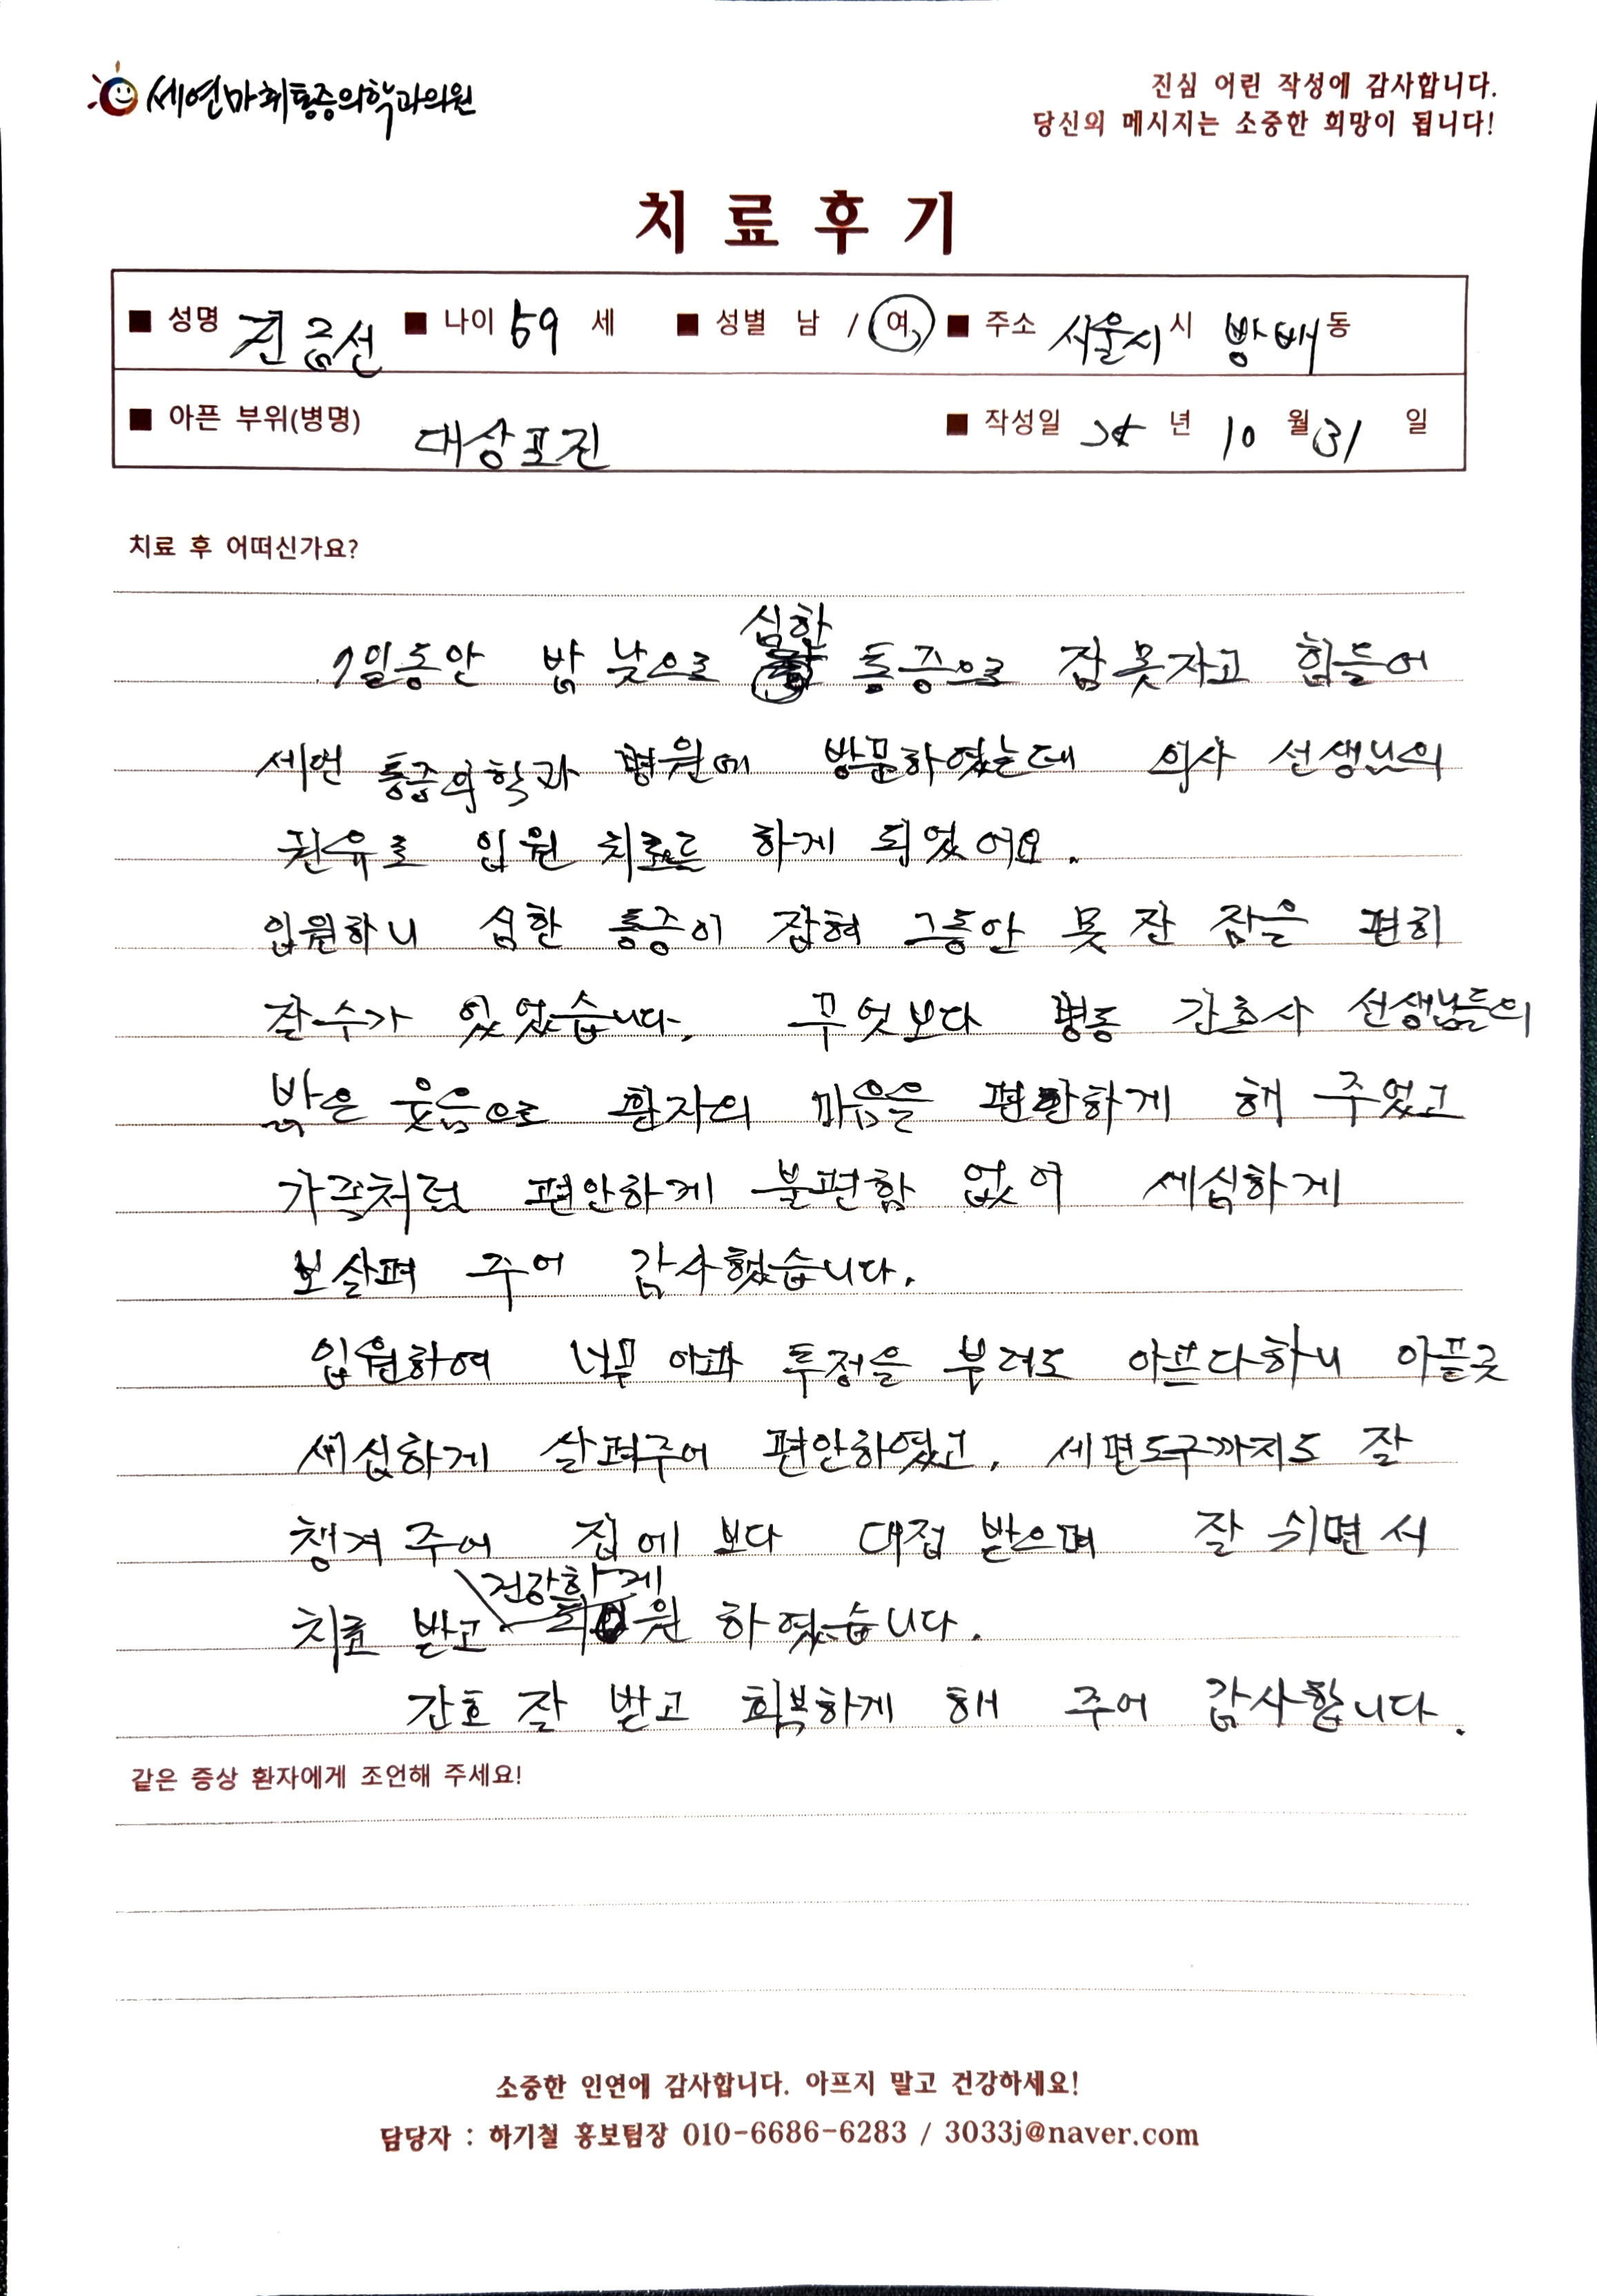 세연마취통증의학과의원
진심 어린 작성에 감사합니다.
당신의 메시지는 소중한 희망이 됩니다!
치료후기
■ 성명 진금선 ■ 나이 59 세 ■ 성별 남 / 여 ■ 주소 서울시 시 방배 동
■ 아픈 부위(병명) 대상포진 ■ 작성일 년 10 월 31 일
치료 후 어떠신가요?
7일동안 밤 낮으로 심한 통증으로 잠못자고 힘들어
세연 통증의학과 병원에 방문하였는데 의사 선생님의
권유로 입원 치료를 하게 되었어요.
입원하니 심한 통증이 잡혀 그동안 못 잔 잠을 편히
잘수가 있었습니다. 무엇보다 병동 간호사 선생님들의
밝은 웃음으로 환자의 마음을 편안하게 해 주었고
가족처럼 편안하게 불편함 없이 세심하게
보살펴 주어 감사했습니다.
입원하여 너무 아파 투정을 부려도 아프다하니 아픈곳
세심하게 살펴주어 편안하였고, 세면도구까지도 잘
챙겨 주어 집에 보다 대접 받으며 잘 쉬면서
치료 받고 건강하게 퇴원 하였습니다.
간호 잘 받고 회복하게 해 주어 감사합니다.
같은 증상 환자에게 조언해 주세요!
소중한 인연에 감사합니다. 아프지 말고 건강하세요!
담당자 : 하기철 홍보팀장 010-6686-6283 / 3033j@naver.com